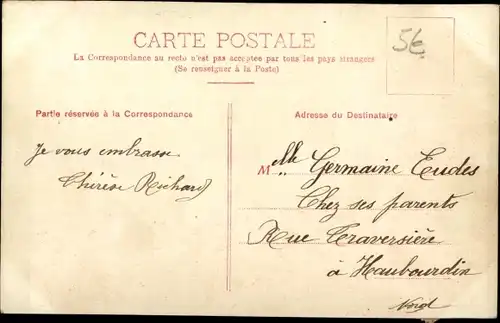 CARTE POSTALE
La Correspondance au recto n'est pas acceptée par tous les pays étrangers
(Se renseigner à la Poste)
56
Partie réservée à la Correspondance
Adresse du Destinataire
Je vous embrasse
Thérèse Richard
Mlle Germaine Eudes
Chez ses parents
Rue Traversière
à Haubourdin
Nord